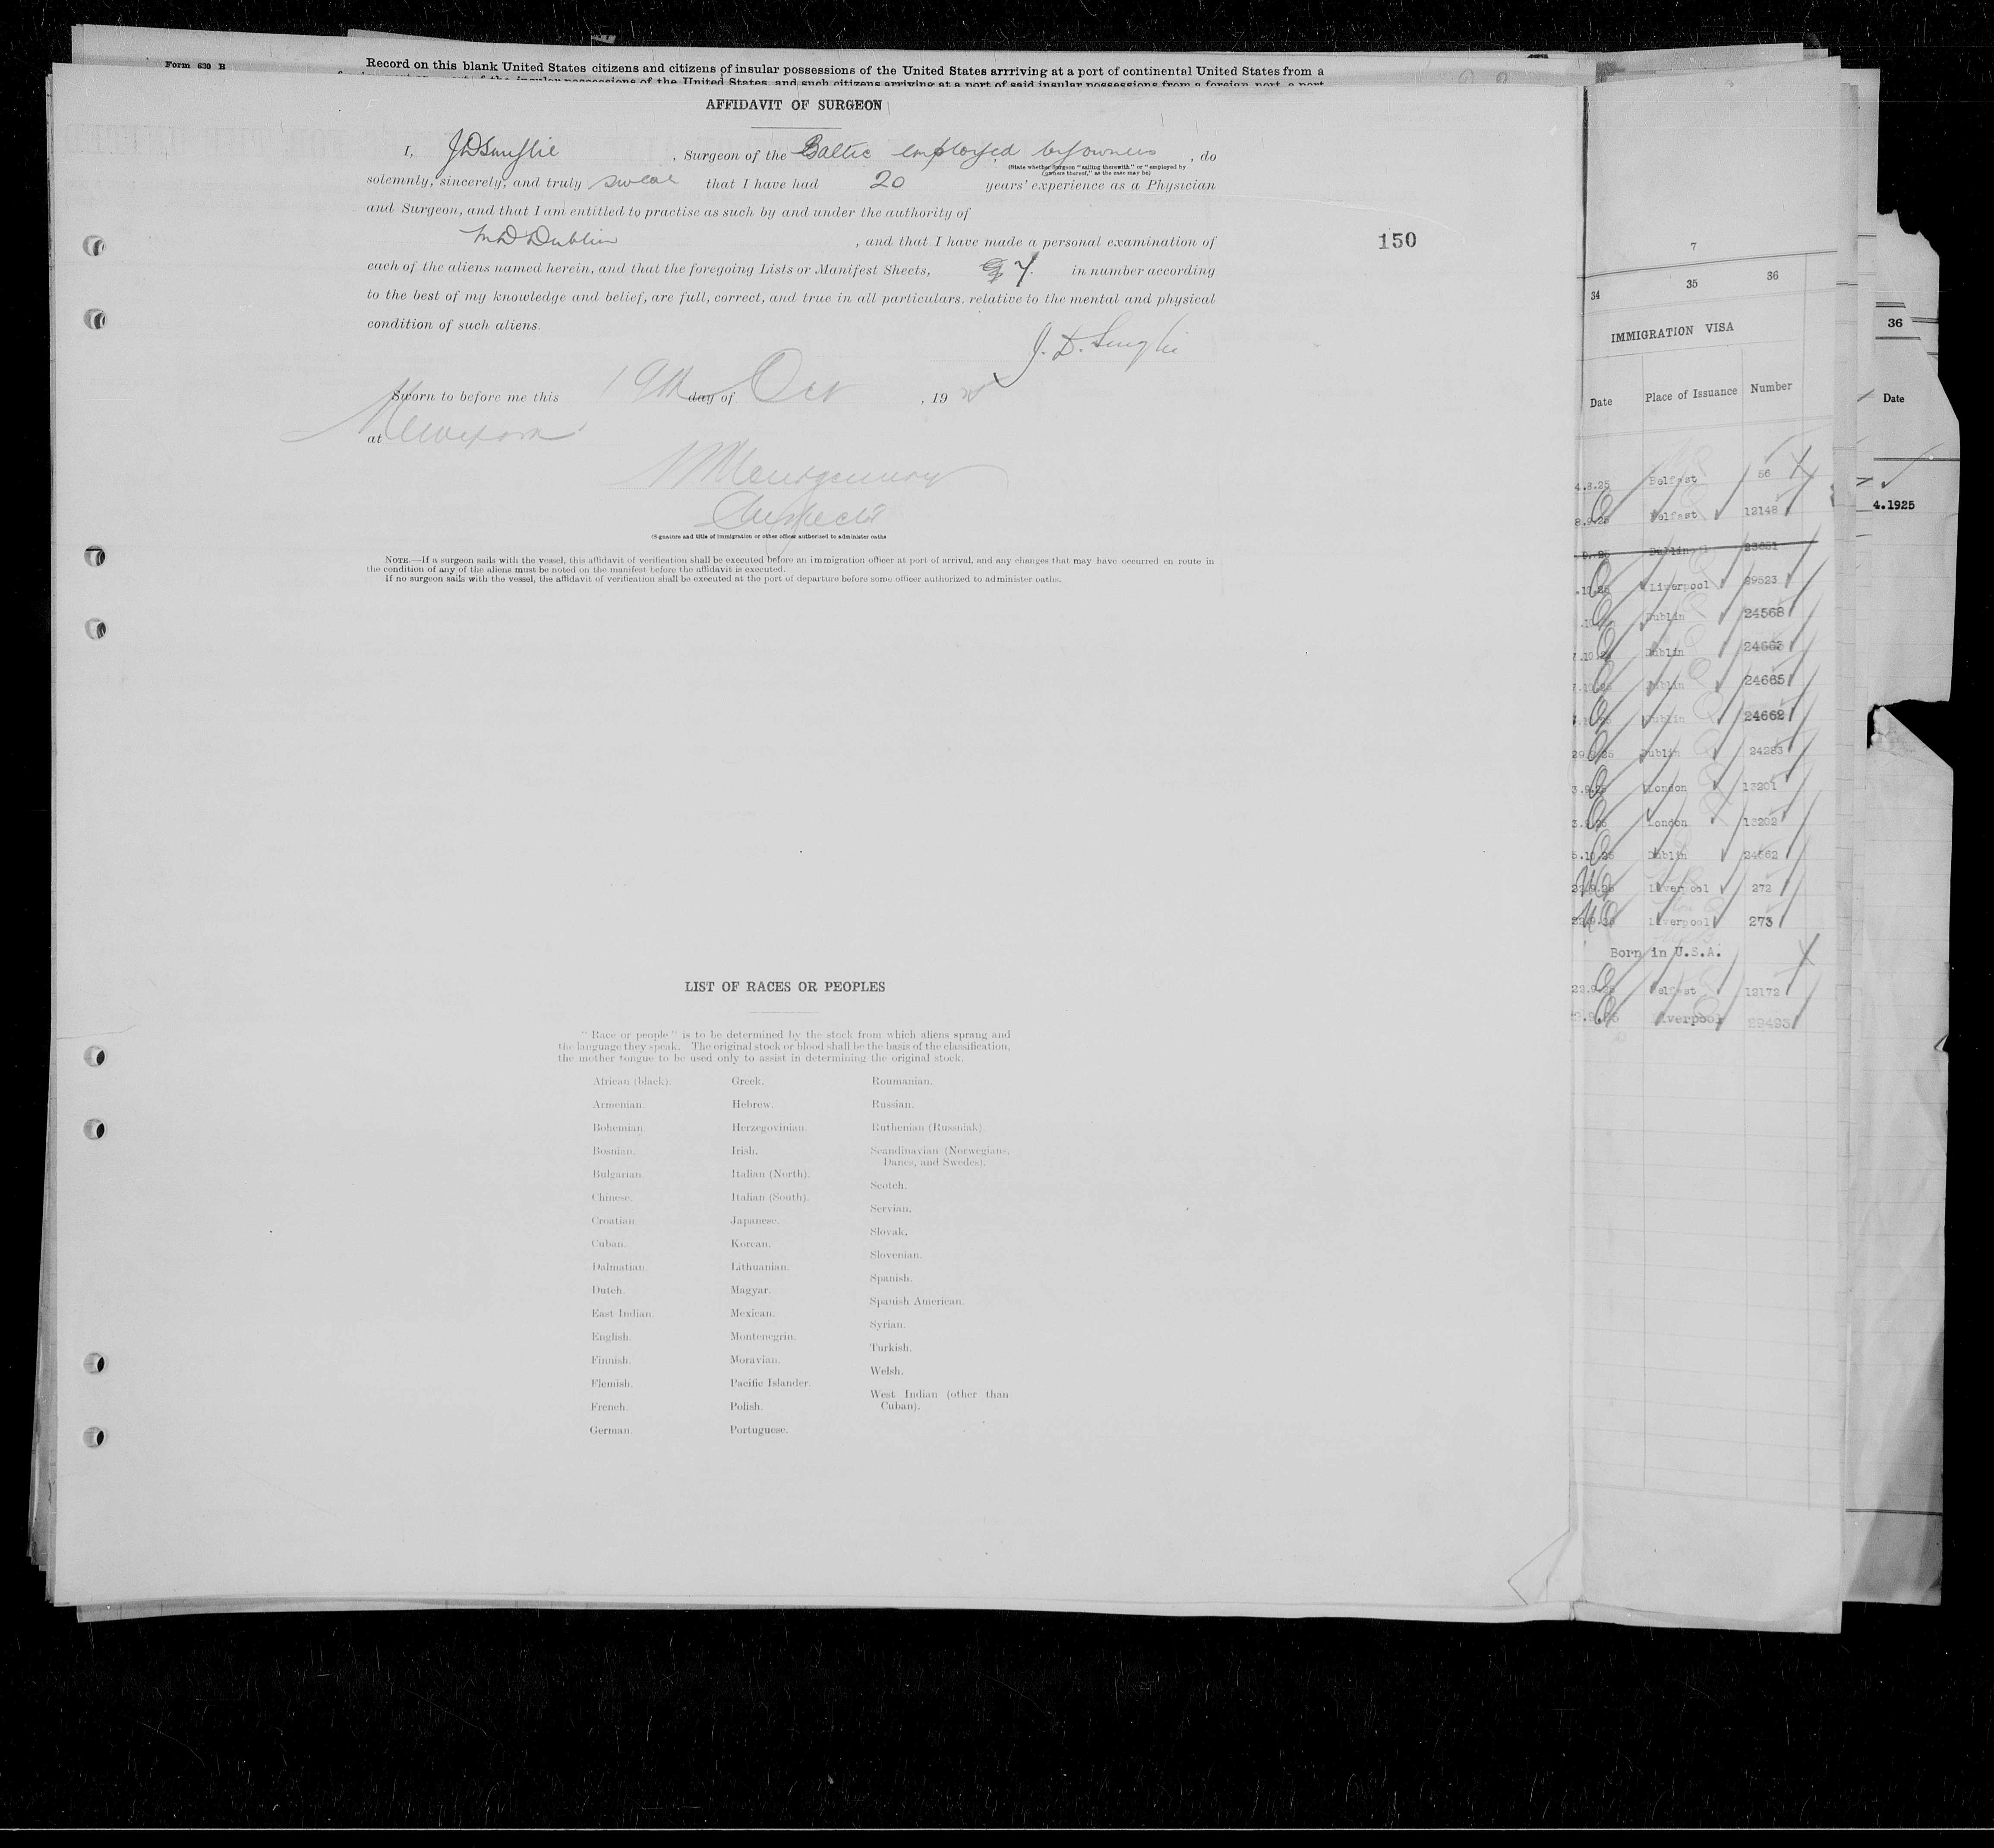 Form 630 B
Record on this blank United States citizens and citizens of insular possessions of the United States arrriving at a port of continental United States from a
AFFIDAVIT OF SURGEON
I, , Surgeon of the Baltic employed by owners , do
(State whether surgeon "sailing therewith" or "employed by
owners thereof," as the case may be)
solemnly, sincerely, and truly swear that I have had 20 years' experience as a Physician
and Surgeon, and that I am entitled to practise as such by and under the authority of
MD Dublin , and that I have made a personal examination of
each of the aliens named herein, and that the foregoing Lists or Manifest Sheets, 7. in number according
to the best of my knowledge and belief, are full, correct, and true in all particulars, relative to the mental and physical
condition of such aliens.
J. D.
Sworn to before me this 19th day of Oct , 19
at New York
Montgomery
Inspector
(Signature and title of immigration or other officer authorized to administer oaths
NOTE.—If a surgeon sails with the vessel, this affidavit of verification shall be executed before an immigration officer at port of arrival, and any changes that may have occurred en route in
the condition of any of the aliens must be noted on the manifest before the affidavit is executed.
If no surgeon sails with the vessel, the affidavit of verification shall be executed at the port of departure before some officer authorized to administer oaths.
150
LIST OF RACES OR PEOPLES
"Race or people" is to be determined by the stock from which aliens sprang and
the language they speak. The original stock or blood shall be the basis of the classification,
the mother tongue to be used only to assist in determining the original stock.
African (black).
Armenian.
Bohemian.
Bosnian.
Bulgarian.
Chinese.
Croatian.
Cuban.
Dalmatian.
Dutch.
East Indian.
English.
Finnish.
Flemish.
French.
German.
Greek.
Hebrew.
Herzegovinian.
Irish.
Italian (North).
Italian (South).
Japanese.
Korean.
Lithuanian.
Magyar.
Mexican.
Montenegrin.
Moravian.
Pacific Islander.
Polish.
Portuguese.
Roumanian.
Russian.
Ruthenian (Russniak).
Scandinavian (Norwegians,
Danes, and Swedes).
Scotch.
Servian.
Slovak.
Slovenian.
Spanish.
Spanish American.
Syrian.
Turkish.
Welsh.
West Indian (other than
Cuban).
7
34 35 36
IMMIGRATION VISA
Date Place of Issuance Number
4.8.25 Belfast 56
8.9.25 Belfast 12148
Dublin
Liverpool 29523
Dublin 24568
Dublin
Dublin 24665
Dublin 24662
Dublin 24283
London 13201
London 13202
Dublin
Liverpool 272
Liverpool 273
Born in U.S.A.
Belfast 12172
Liverpool 29495
36
Date
4.1925